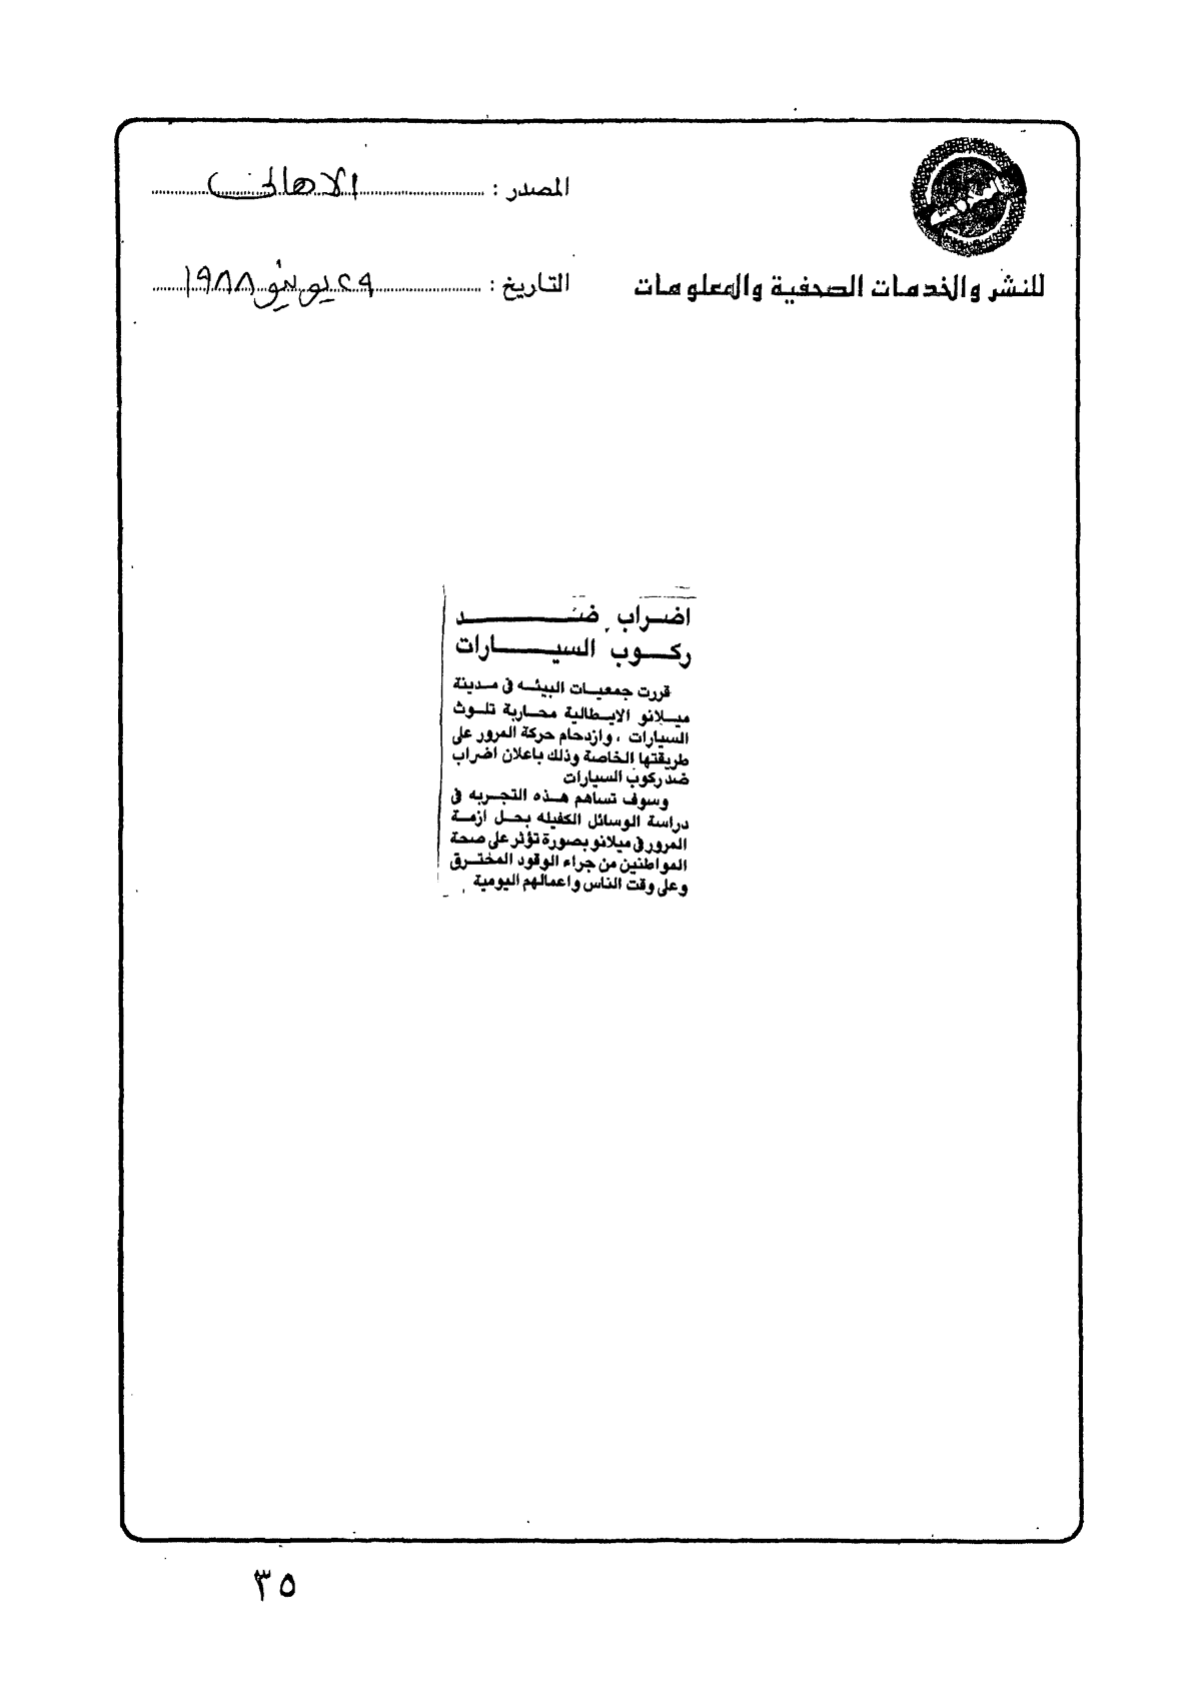 المصدر : الاهالى
للنشر والخدمات الصحفية والمعلومات
التاريخ : ٢٩ يونيو ١٩٨٨
اضراب ضد
ركوب السيارات
قررت جمعيات البيئه فى مدينة
ميلانو الايطالية محاربة تلوث
السيارات ، وازدحام حركة المرور على
طريقتها الخاصة وذلك باعلان اضراب
ضد ركوب السيارات
وسوف تساهم هذه التجربه فى
دراسة الوسائل الكفيله بحل ازمة
المرور فى ميلانو بصورة تؤثر على صحة
المواطنين من جراء الوقود المخترق
وعلى وقت الناس واعمالهم اليومية
٣٥